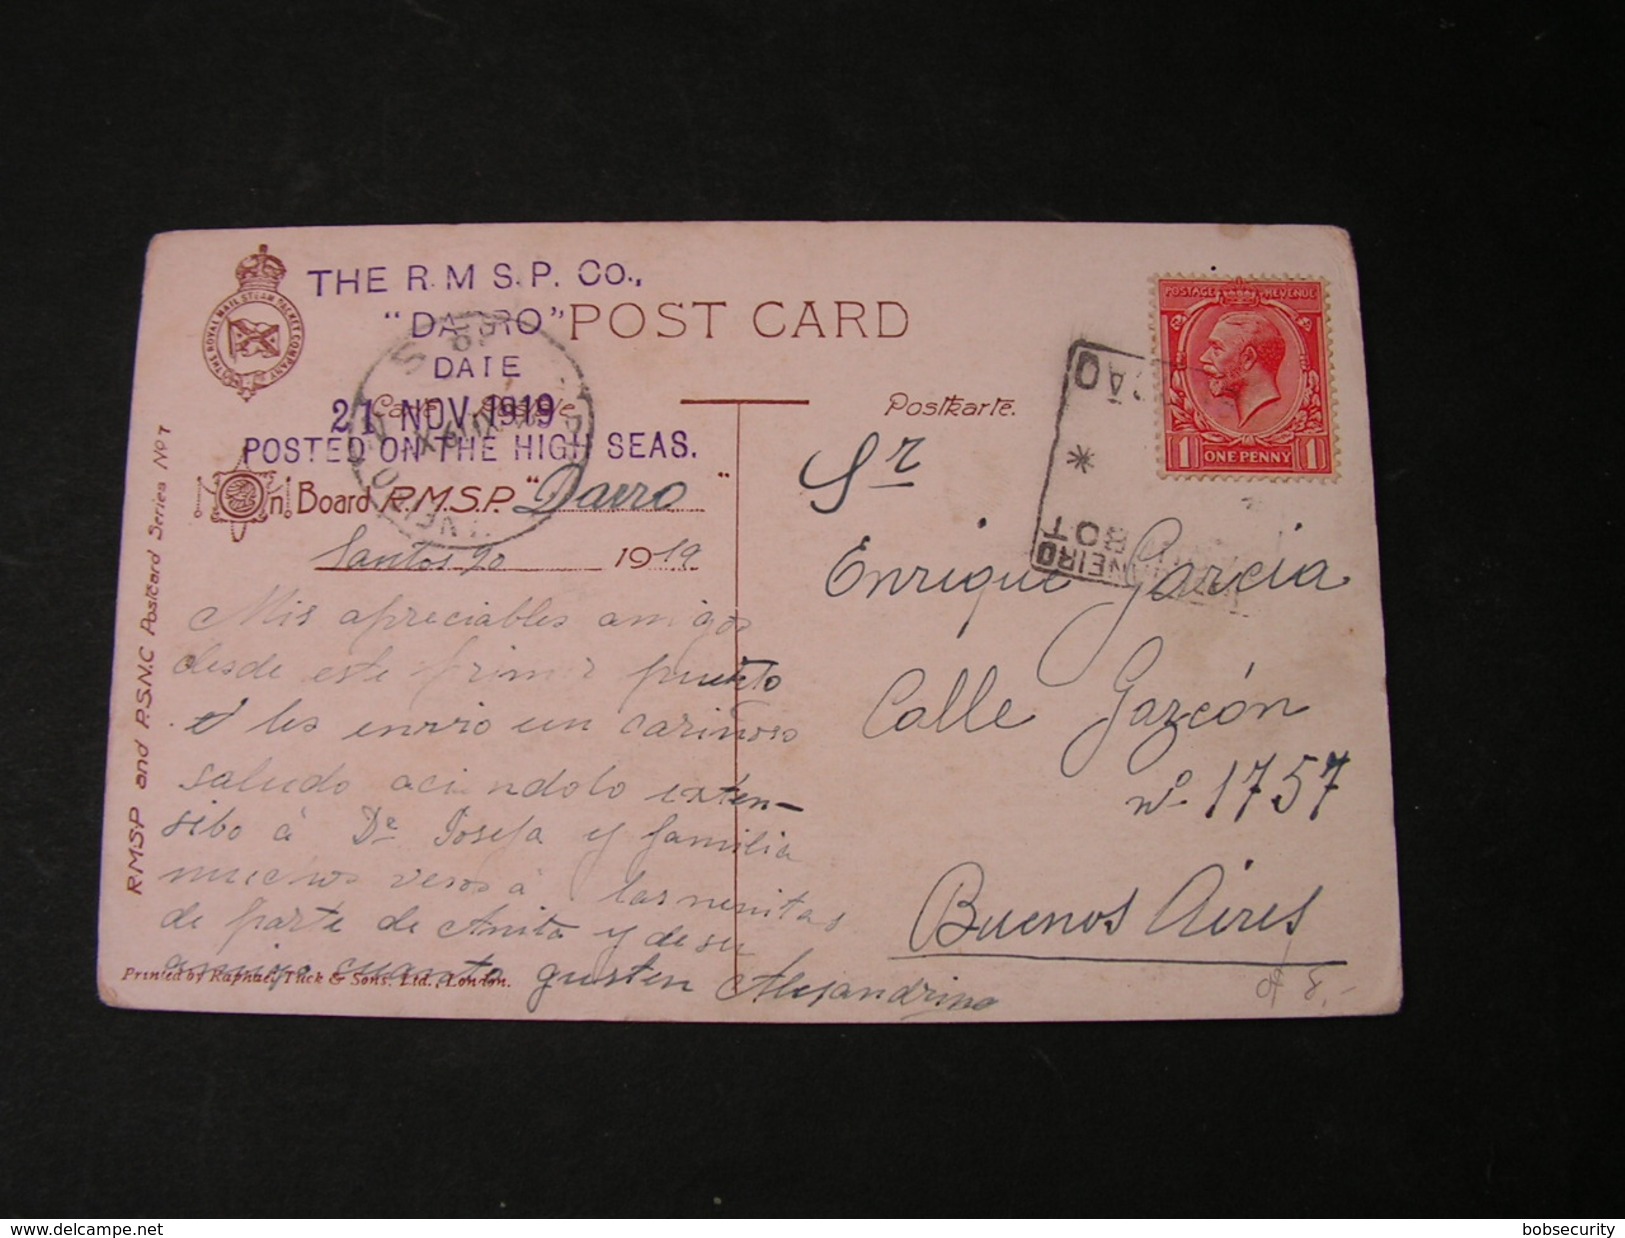 THE R.M.S.P. CO.,
"DARRO"
DATE
21 NOV 1919
POSTED ON THE HIGH SEAS.
THE ROYAL MAIL STEAM PACKET COMPANY
POST CARD
Carte Postale.
Postkarte.
On Board R.M.S.P. "Darro"
Santos 20 1919
Mis apreciables amigos
desde este primer puerto
les envio un cariñoso
saludo aci ndolo exten-
sibo á Da Josefa y familia
muchos vesos á las nenitas
de parte de Anita y de su
amiga cuanto gusten Alejandrina
RMSP and P.S.N.C Postcard Series No 7
Printed by Raphael Tuck & Sons. Ltd., London.
POSTAGE REVENUE
1 ONE PENNY 1
NEIRO
Sr
Enrique Garcia
Calle Garzón
no 1757
Buenos Aires
8,-
www.delcampe.net
bobsecurity